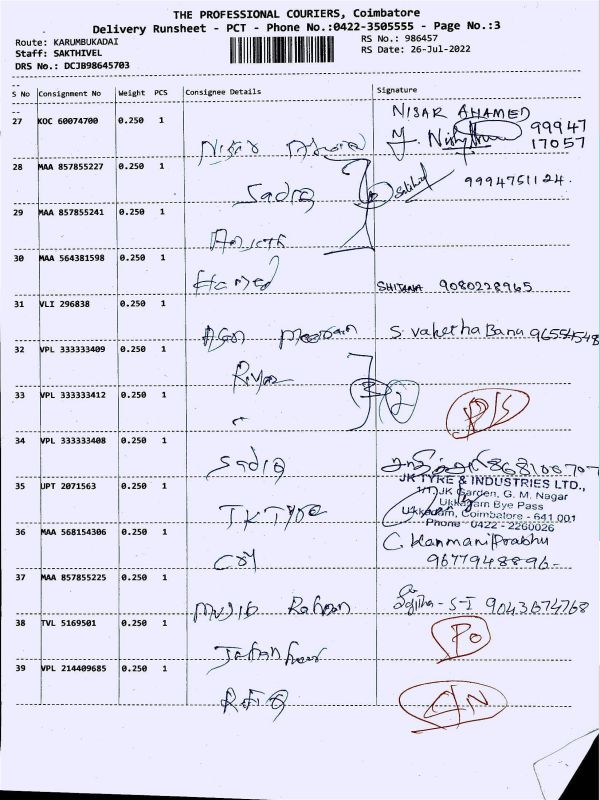 THE PROFESSIONAL COURIERS, Coimbatore
Delivery Runsheet - PCT - Phone No.:0422-3505555 - Page No.:3
Route: KARUMBUKADAI
RS No.: 986457
Staff: SAKTHIVEL
RS Date: 26-Jul-2022
DRS No.: DCJB98645703
S No Consignment No Weight PCS Consignee Details Signature
NISAR AHAMED
27 KOC 60074700 0.250 1
99947
17057
28 MAA 857855227 0.250 1
Sadiq 9994751124.
29 MAA 857855241 0.250 1
30 MAA 564381598 0.250 1
Hamed 9080228965
31 VLI 296838 0.250 1
S. Vahetha Banu 96554548
32 VPL 333333409 0.250 1
Riyaz
33 VPL 333333412 0.250 1
2
34 VPL 333333408 0.250 1
Sadiq
JK TYRE & INDUSTRIES LTD.,
35 UPT 2071563 0.250 1
1/1, JK Garden, G. M. Nagar
Ukkadam Bye Pass
JK Tyre Ukkadam, Coimbatore - 641 001
Phone : 0422 - 2260026
36 MAA 568154306 0.250 1
C. Kanmani Prabhu
9677948896-
37 MAA 857855225 0.250 1
Mujib Rahman 9043674768
38 TVL 5169501 0.250 1
39 VPL 214409685 0.250 1
RAFIQ